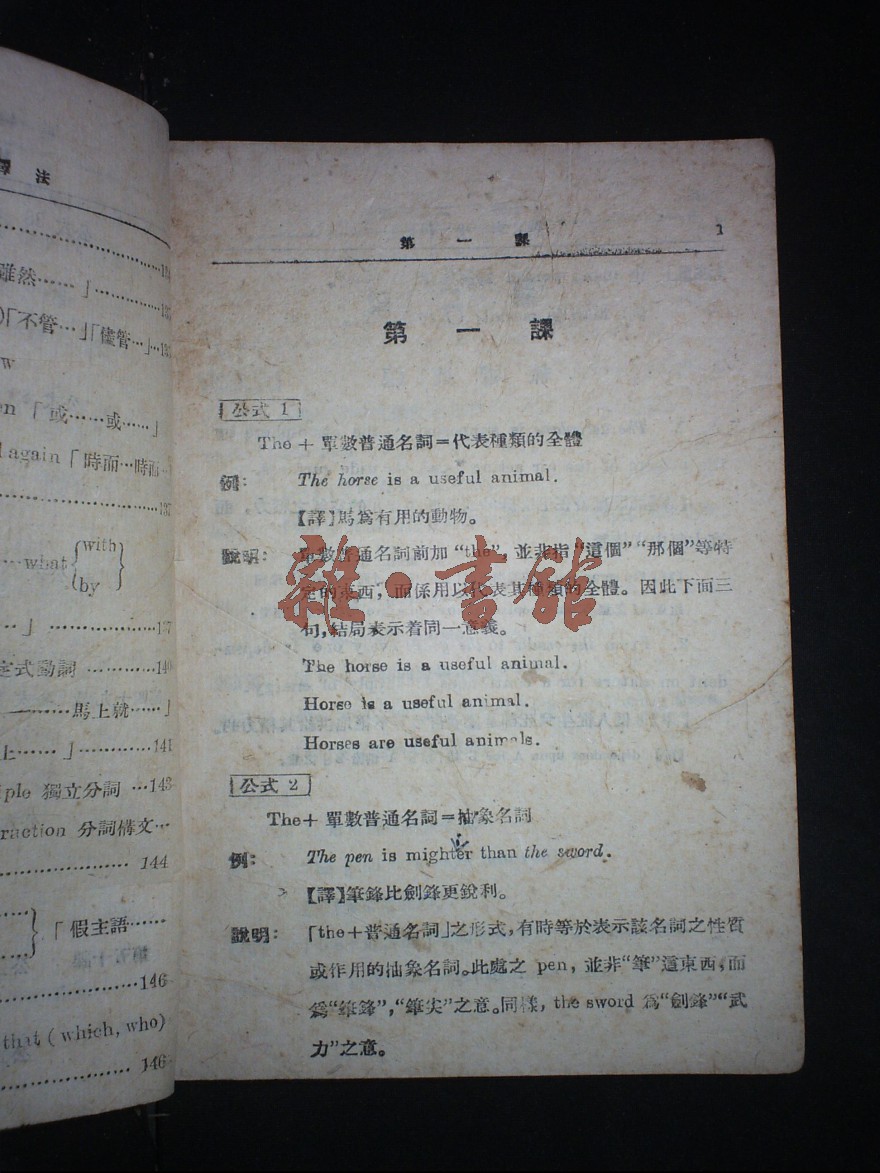 譯法
雖然……」
「不管…」「儘管…」
w
en「或……或……」
again「時而…時而
137
…what {with
by}
…」……137
定式動詞 …………140
———……馬上就……」
上……」…………141
ple 獨立分詞 …143
raction 分詞構文…
144
「假主語……
146
that (which, who)
146
第一課 1
第一課
公式 1
The + 單數普通名詞=代表種類的全體
例: The horse is a useful animal.
【譯】馬爲有用的動物。
說明: 單數普通名詞前加“the”, 並非指“這個”“那個”等特
定的東西, 而係用以代表其種類的全體。因此下面三
句, 結局表示着同一意義。
The horse is a useful animal.
Horse is a useful animal.
Horses are useful animals.
公式 2
The+ 單數普通名詞=抽象名詞
例: The pen is mighter than the sword.
【譯】筆鋒比劍鋒更銳利。
說明: 「the+普通名詞」之形式, 有時等於表示該名詞之性質
或作用的抽象名詞。此處之 pen, 並非“筆”這東西, 而
爲“筆鋒”, “筆尖”之意。同樣, the sword 爲“劍鋒”“武
力”之意。
雜·書館